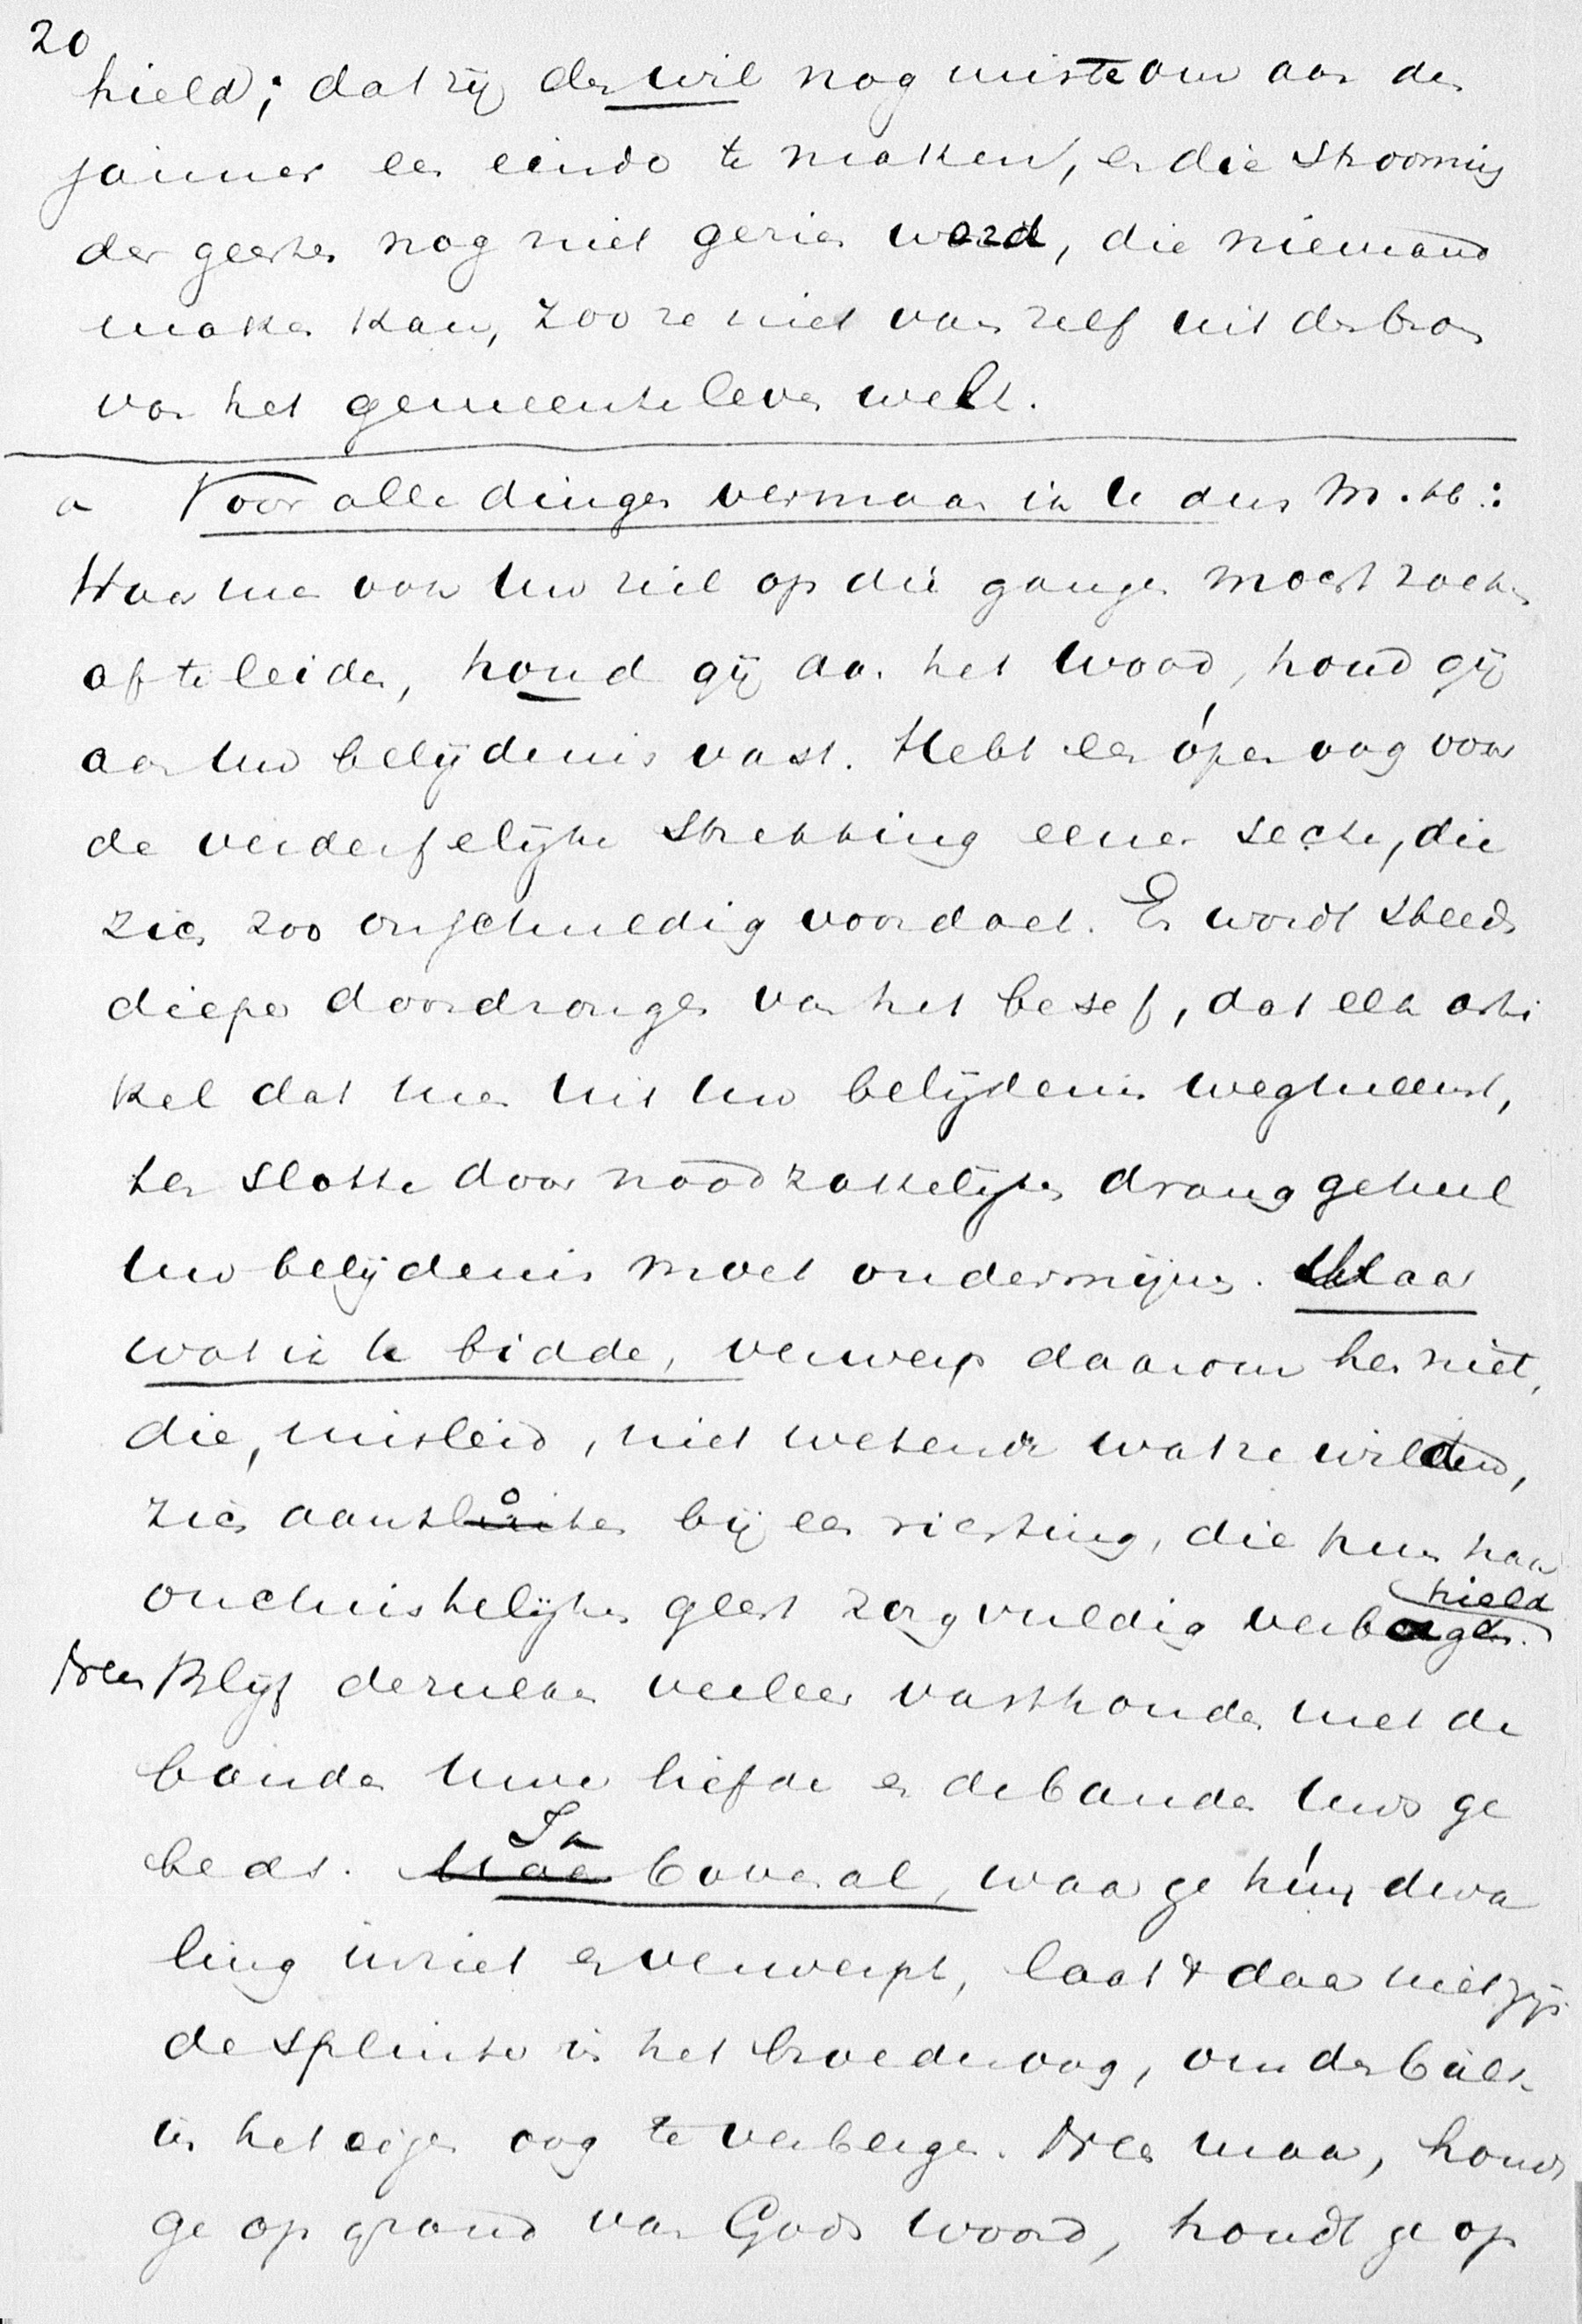 20
hield; dat zij den wil nog miste om aan den
jammer een einde te maken, en die strooming
der geesten nog niet gezien werd, die niemand
maken kan, zoo ze niet van zelf uit de bron
van het gemeenteleven welt.
a Voor alle dingen vermaan ik U dus M. bb.:
Waar men ook Uw ziel op die gangen mocht zoeken
af te leiden, houd gij aan het woord, houd gij
aan Uw belijdenis vast. Hebt een ópen oog voor
de verderfelijke strekking eener secte, die
zich zoo onschuldig voordoet. En wordt steeds
dieper doordrongen van het besef, dat elk arti
kel dat men uit Uw belijdenis wegneemt,
ten slotte door noodzakelijken drang geheel
Uw belijdenis moet ondermijnen. Maar
wat ik U bidde, verwerp daarom hen niet,
die, misleid, niet wetende wat ze wilden,
zich aansloten bij een richting, die hun haar
onchristelijken geest zorgvuldig verborgen hield
Neen Blijf dezulken veeleer vasthouden met de
banden Uwer liefde en de banden Uws ge
beds. Maar Ja bovenal, waar ge hún dwa
ling inziet en verwerpt, laat 't daar niet zijn
de splinter in het broederoog, om den balk
in het eigen oog te verbergen. Neen maar, houdt
ge op grond van Gods woord, houdt ge op